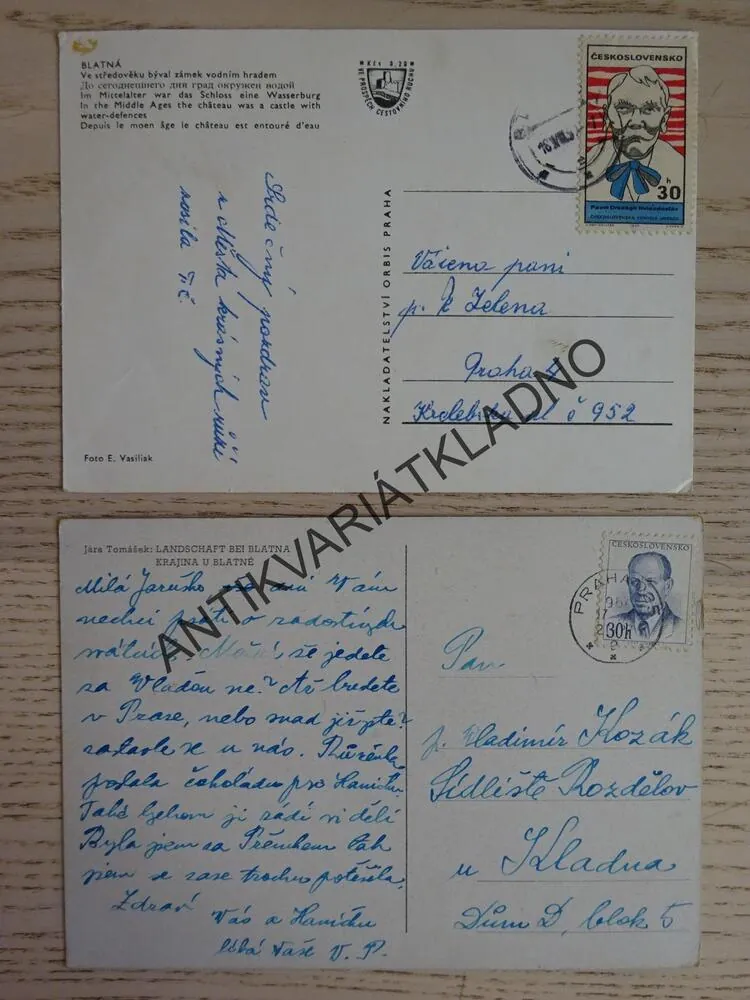 BLATNÁ
Ve středověku býval zámek vodním hradem
До сегоднешнего дня град окружен водой
Im Mittelalter war das Schloss eine Wasserburg
In the Middle Ages the château was a castle with
water-defences
Depuis le moen âge le château est entouré d'eau
Kčs 3,20
VE PROSPĚCH CESTOVNÍHO RUCHU
ČESKOSLOVENSKO
30 h
Pavol Országh Hviezdoslav
Srdečný pozdrav
z Města krásných růží
NAKLADATELSTVÍ ORBIS PRAHA
Vážena paní
p. Zelena
Praha
č 952
Foto E. Vasiliak
ANTIKVARIÁTKLADNO
Jára Tomášek: LANDSCHAFT BEI BLATNA
KRAJINA U BLATNÉ
ČESKOSLOVENSKO
30h
PRAHA
Milá Jaruško ani Vám
nechci psáti o radostných
svátcích. že jedete
za Vláďou ne? Až budete
v Praze, nebo snad již jste?
zastavte se u nás. Růženka
poslala čokoládu pro Haničku.
Také bychom ji rádi viděli
Byla jsem za Přemkem tak
jsem se zase trochu potěšila.
Zdraví
Vás a Haničku
líbá Vaše V. P.
Pan
p. Vladimír Kozák
Sídliště Rozdělov
u Kladna
Dům D, blok 5